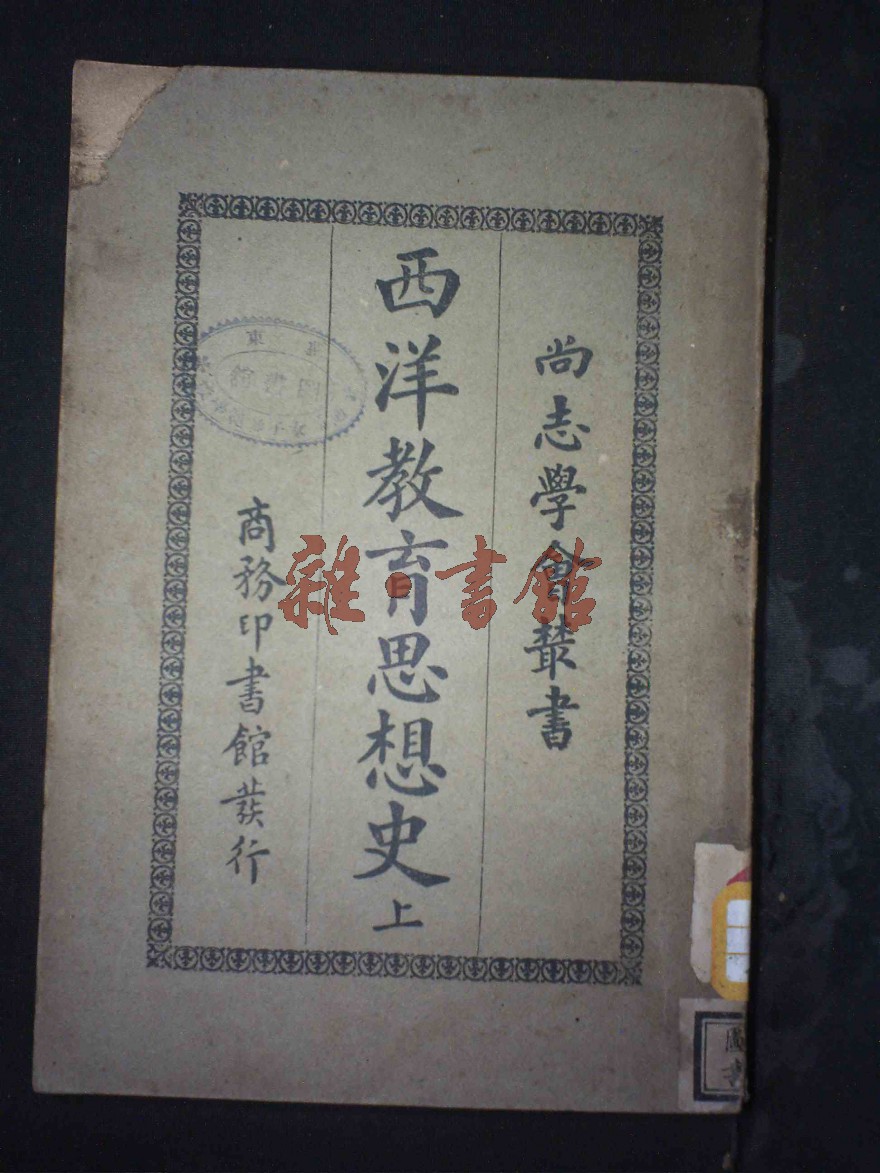 尚志學會叢書
西洋教育思想史上
商務印書館發行
雜·書館
圖書